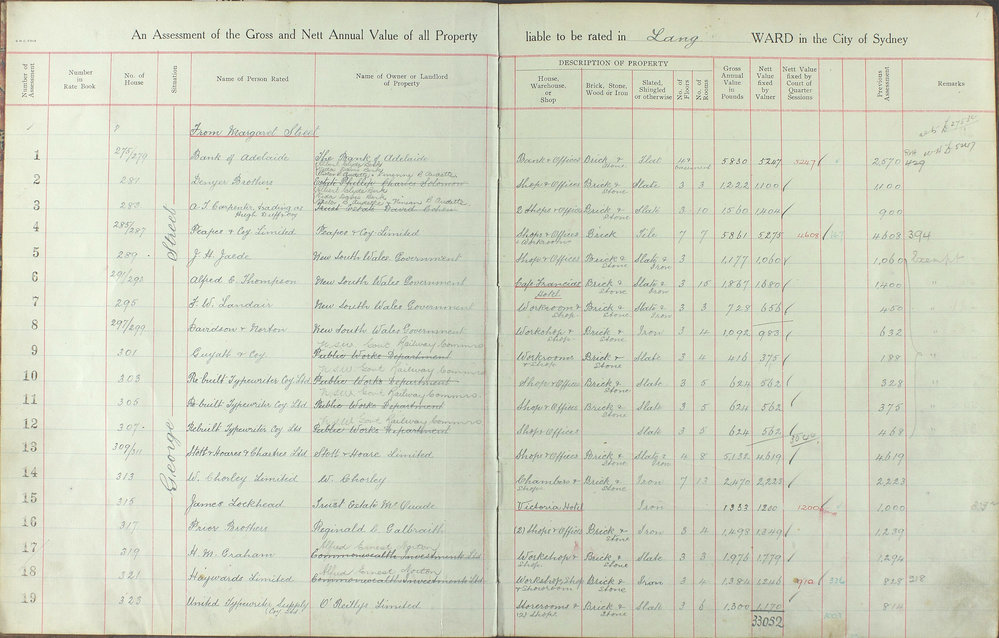 An Assessment of the Gross and Nett Annual Value of all Property liable to be rated in Lang WARD in the City of Sydney
DESCRIPTION OF PROPERTY
Number of Assessment | Number in Rate Book | No. of House | Situation | Name of Person Rated | Name of Owner or Landlord of Property | House, Warehouse, or Shop | Brick, Stone, Wood or Iron | Slated, Shingled or otherwise | No. of Floors | No. of Rooms | Gross Annual Value in Pounds | Nett Value fixed by Valuer | Nett Value fixed by Court of Quarter Sessions | Previous Assessment | Remarks
From Margaret Street
George Street
1 275/279 Bank of Adelaide The Bank of Adelaide Bank & Offices Brick & Stone Slate 5830 5247 5247 2,570 429
2 281 Denyer Brothers Estate Phillip Charles Solomon Shop & Offices Brick & Stone Slate 3 3 1222 1100 1100
3 283 A J Carpenter trading as Hugh Duffy Coy Trust Estate David Cohen 2 Shops & Offices Brick & Stone Slate 3 10 1560 1404 900
4 285/287 Peapes & Coy Limited Peapes & Coy Limited Shops & Offices & Workrooms Brick Tile 7 7 5861 5275 4608 4608 394
5 289 J. H. Jaede New South Wales Government Shop & Offices Brick & Stone Slate & Iron 1,177 1,060 1,060 Exempt
6 291/293 Alfred C. Thompson New South Wales Government Cafe Francais Hotel Brick & Stone Slate & Iron 3 15 1867 1680 1400 "
7 295 New South Wales Government Workroom & Shop Brick & Stone Slate & Iron 3 3 728 656 450 "
8 297/299 Davidson & Norton New South Wales Government Workshop & Shop Brick & Stone Iron 3 4 1,092 983 632 "
N.S.W. Govt Railway Commrs
9 301 Guyatt & Coy Public Works Department Workrooms & Shop Brick & Stone Slate 3 4 416 375 188 "
N.S.W. Govt Railway Commrs
10 303 Rebuilt Typewriter Coy Ltd Public Works Department Shop & Offices Brick & Stone Slate 3 5 624 562 328 "
N.S.W. Govt Railway Commrs
11 305 Rebuilt Typewriter Coy Ltd Public Works Department Shop & Offices Brick & Stone Slate 3 5 624 562 375 "
N.S.W. Govt Railway Commrs
12 307 Rebuilt Typewriter Coy Ltd Public Works Department Shop & Offices Slate 3 5 624 562 468 "
13 309/311 Stott & Hoares & Chartres Ltd Stott & Hoare Limited Shops & Offices Brick & Stone Slate & Iron 4 8 5,132 4619 4619
14 313 W. Chorley Limited W. Chorley Chambers & Shop Brick & Stone Iron 7 13 2,470 2,223 2,223
15 315 James Lockhead Trust Estate McQuade Victoria Hotel Iron 1333 1200 1200 1,000
16 317 Prior Brothers Reginald C. Galbraith (2) Shops & Offices Brick & Stone Iron 3 4 1,498 1349 1,239
Alfred Ernest Norton
17 319 H. M. Graham Commonwealth Investments Ltd Workshop & Shop Brick & Stone Slate 3 3 1,976 1,779 1,294
Alfred Ernest Norton
18 321 Haywards Limited Commonwealth Investments Ltd Workshop, Shop & Showroom Brick & Stone Iron 3 4 1384 1246 912 326 828 318
19 323 United Typewriter Supply Coy Ltd O'Reillys Limited Storerooms & (2) Shops Brick & Stone Slate 3 6 1,300 1,170 814
33052